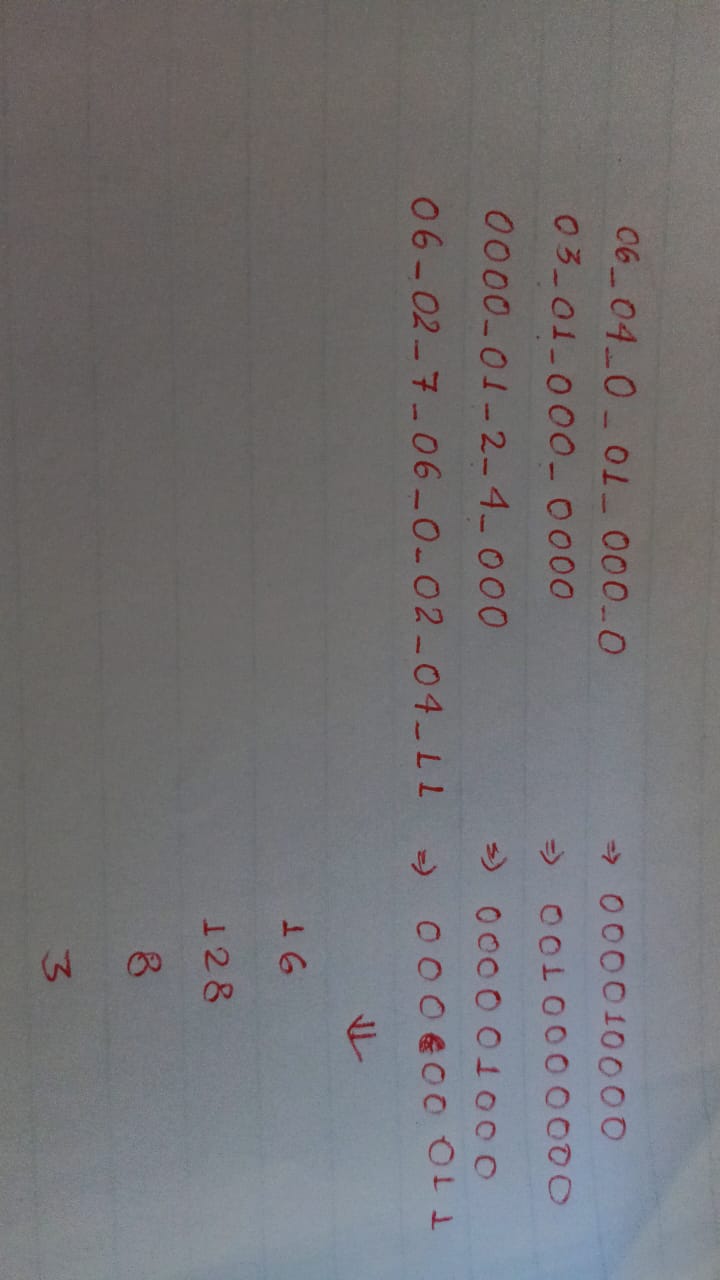 06_04_0_01_000_0 => 000010000
03_01_000_0000 => 0010000000
0000_01_2_4_000 => 000001000
06_02_7_06_0_02_04_11 => 000000011
⇓
16
128
8
3